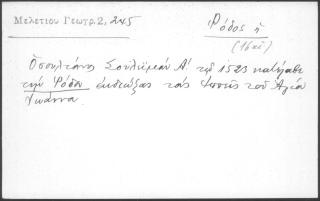 Μελετίου Γεωγρ. 2, 245
Ῥόδος ἡ
(16 αἰ)
Ὁ σουλτάνος Σουλεϊμὰν Α' τῷ 1523 κατέλαβε
τὴν Ῥόδον ἐκδιώξας τοὺς ἱππεῖς τοῦ Ἁγίου
Ἰωάννου.